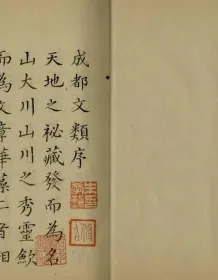 成都文類序
天地之祕藏發而為名
山大川山川之秀靈歟
而為文章華藻二者相